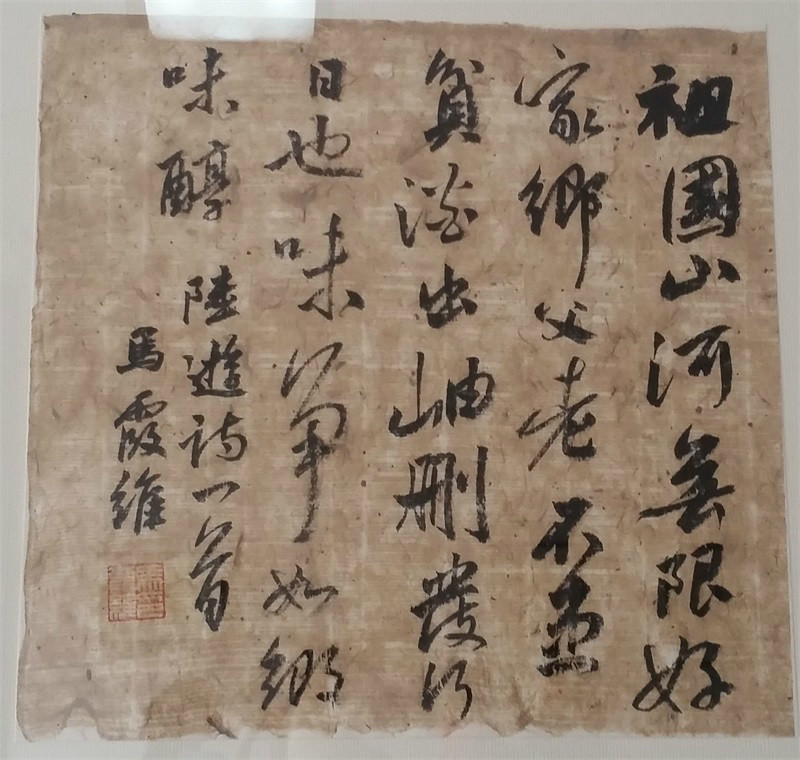 祖國山河無限好
家鄉父老不盡
貧酒出岫刪發行
日也味爭如鄉
味醇
陸遊詩一首
馬霞維